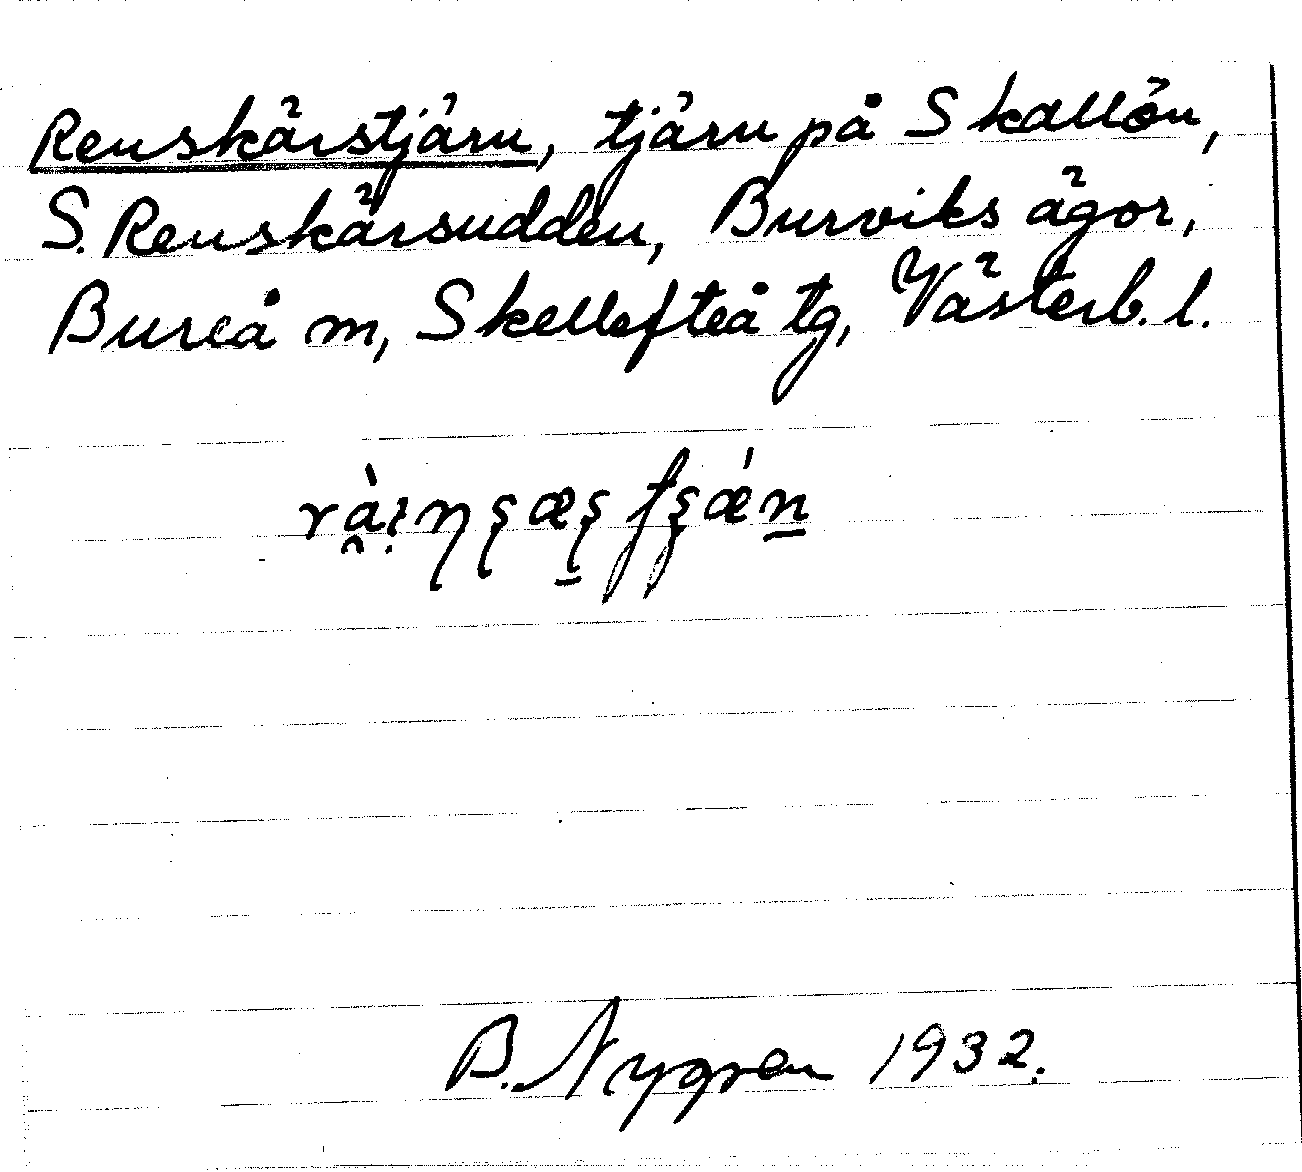 Renskärstjärn, tjärn på Skallön,
S. Renskärsudden, Burviks ägor,
Bureå m, Skellefteå tg, Västerb. l.
B. Nygren 1932.